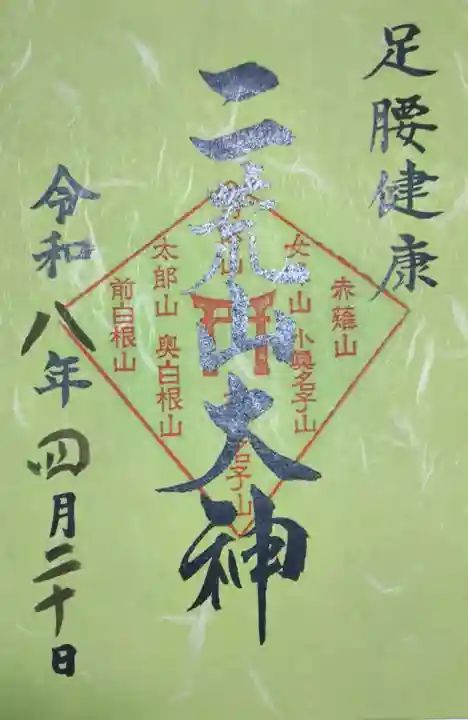 足腰健康
二荒山大神
令和八年四月二十日
赤薙山
小真名子山
女 山
山
名子山
太郎山
奥白根山
前白根山